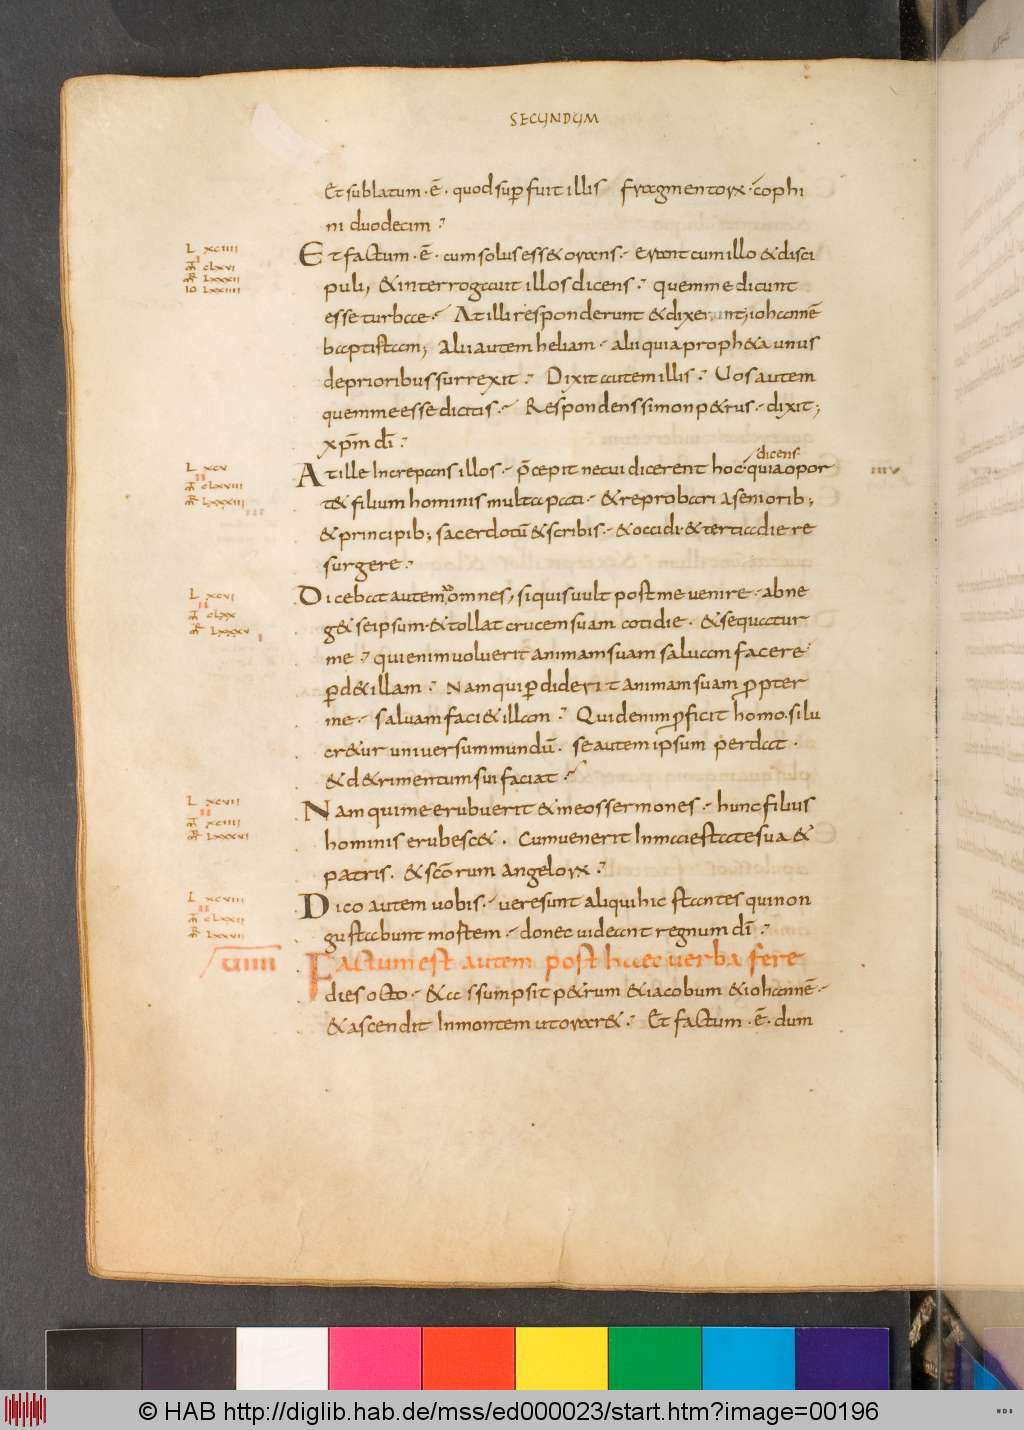 SECUNDUM
Et sublatum · ē · quod sup̄fuit illis fragmentorx · cophi
ni duodecim
L xciiii
Et factum · ē · cum solus ess& orans · erant cum illo & disci
M̄ clxvi
M̄R lxxxii
IO lxxiiii
puli, & interrogauit illos dicens · quem me dicunt
esse turbae · At illi responderunt & dixerunt, iohannē
baptistam, Alii autem heliam · alii quia proph&a unus
de prioribus surrexit · Dixit autem illis · Uos autem
quem me esse dicitis · Respondens simon p&rus · dixit,
xp̄m dī
dicens
L xcv
At ille Increpans illos · p̄cepit ne cui dicerent hoc · quia opor
M̄ clxviii
M̄R lxxxiii
t& filium hominis multa pati · & reprobari a seniorib;
& principib; sacerdotū & scribis · & occidi · & tertia die re
surgere
L xcvi
Dicebat autem omnes, si quis uult post me uenire · abne
M̄ clxx
g& se ipsum · & tollat crucem suam cotidie · & sequatur
M̄R lxxxv
me · qui enim uoluerit animam suam saluam facere
p̄d& illam · Nam qui p̄diderit animam suam p̄pter
me · saluam faci& illam · Quid enim p̄ficit homo · si lu
cr&ur uniuersum mundū · se autem ipsum perdat ·
& d&rimentum sui faciat
L xcvii
Nam qui me erubuerit & meos sermones · hunc filius
M̄ xciiii
M̄R lxxxvi
hominis erubesc& · Cum uenerit In maiestate sua &
patris · & scōrum angelorx
L xcviii
Dico autem uobis · uere sunt aliqui hic stantes qui non
M̄ clxxii
M̄R lxxvii
gustabunt mortem · donec uideant regnum dī
uiiii
Factum est autem post haec uerba fere
dies octo · & assumpsit p&rum & iacobum & iohannē ·
& ascendit In montem ut orar& · Et factum · ē · dum
© HAB http://diglib.hab.de/mss/ed000023/start.htm?image=00196